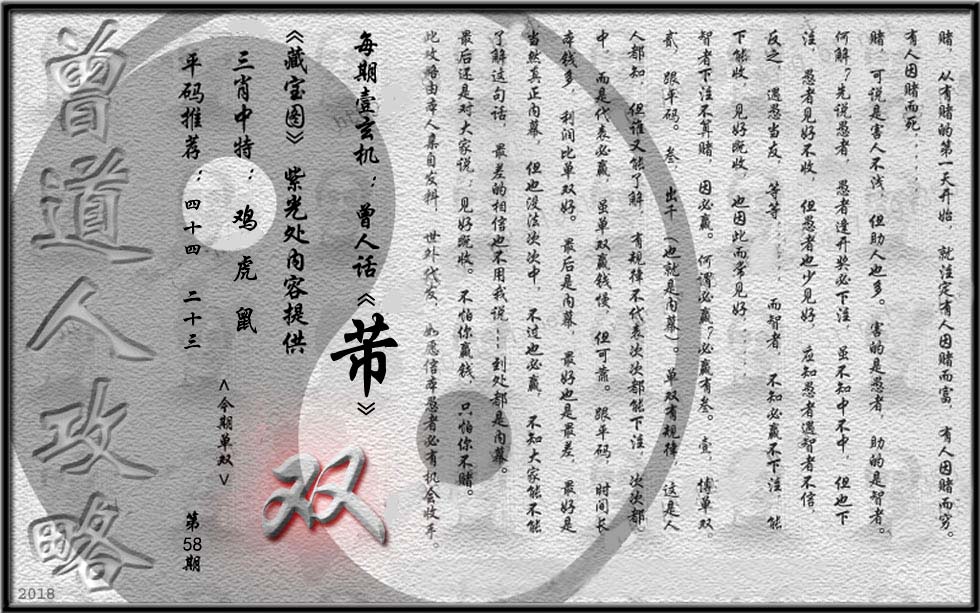 赌，从有赌的第一天开始，就注定有人因赌而富，有人因赌而穷。
有人因赌而死．．．．．．
赌，可说是害人不浅，但助人也多。害的是愚者，助的是智者。
何解？先说愚者，愚者逢开奖必下注，虽不知中不中，但也下
注，愚者见好不收，但愚者也少见好，应知愚者遇智者不信，
反之，遇愚当友，等等．．．．．．而智者，不知必赢不下注，能
下能收，见好既收，也因此而常见好．．．．．．
智者下注不算赌，因必赢。何谓必赢？必赢有叁。壹，博单双，
贰，跟平码。叁，出千（也就是内幕）。单双有规律，这是人
人都知，但谁又能了解，有规律不代表次次都能下注，次次都
中，而是代表必赢，虽单双赢钱慢，但可靠。跟平码，时间长
本钱多，利润比单双好。最后是内幕，最好也是最差，最好是
当然真正内幕，但也没法次次中，不过也必赢，不知大家能不能
了解这句话，最差的相信也不用我说……到处都是内幕。
最后还是对大家说；见好既收。不怕你赢钱，只怕你不赌。
此攻略由本人集自发料，世外代发，如愿信本愚者必有机会收手。
每期壹玄机：曾人话《芾》
《藏宝图》紫光处内容提供
三肖中特：鸡 虎 鼠
平码推荐：四十四 二十三
<今期单双>
双
第58期
曾道人攻略
2018